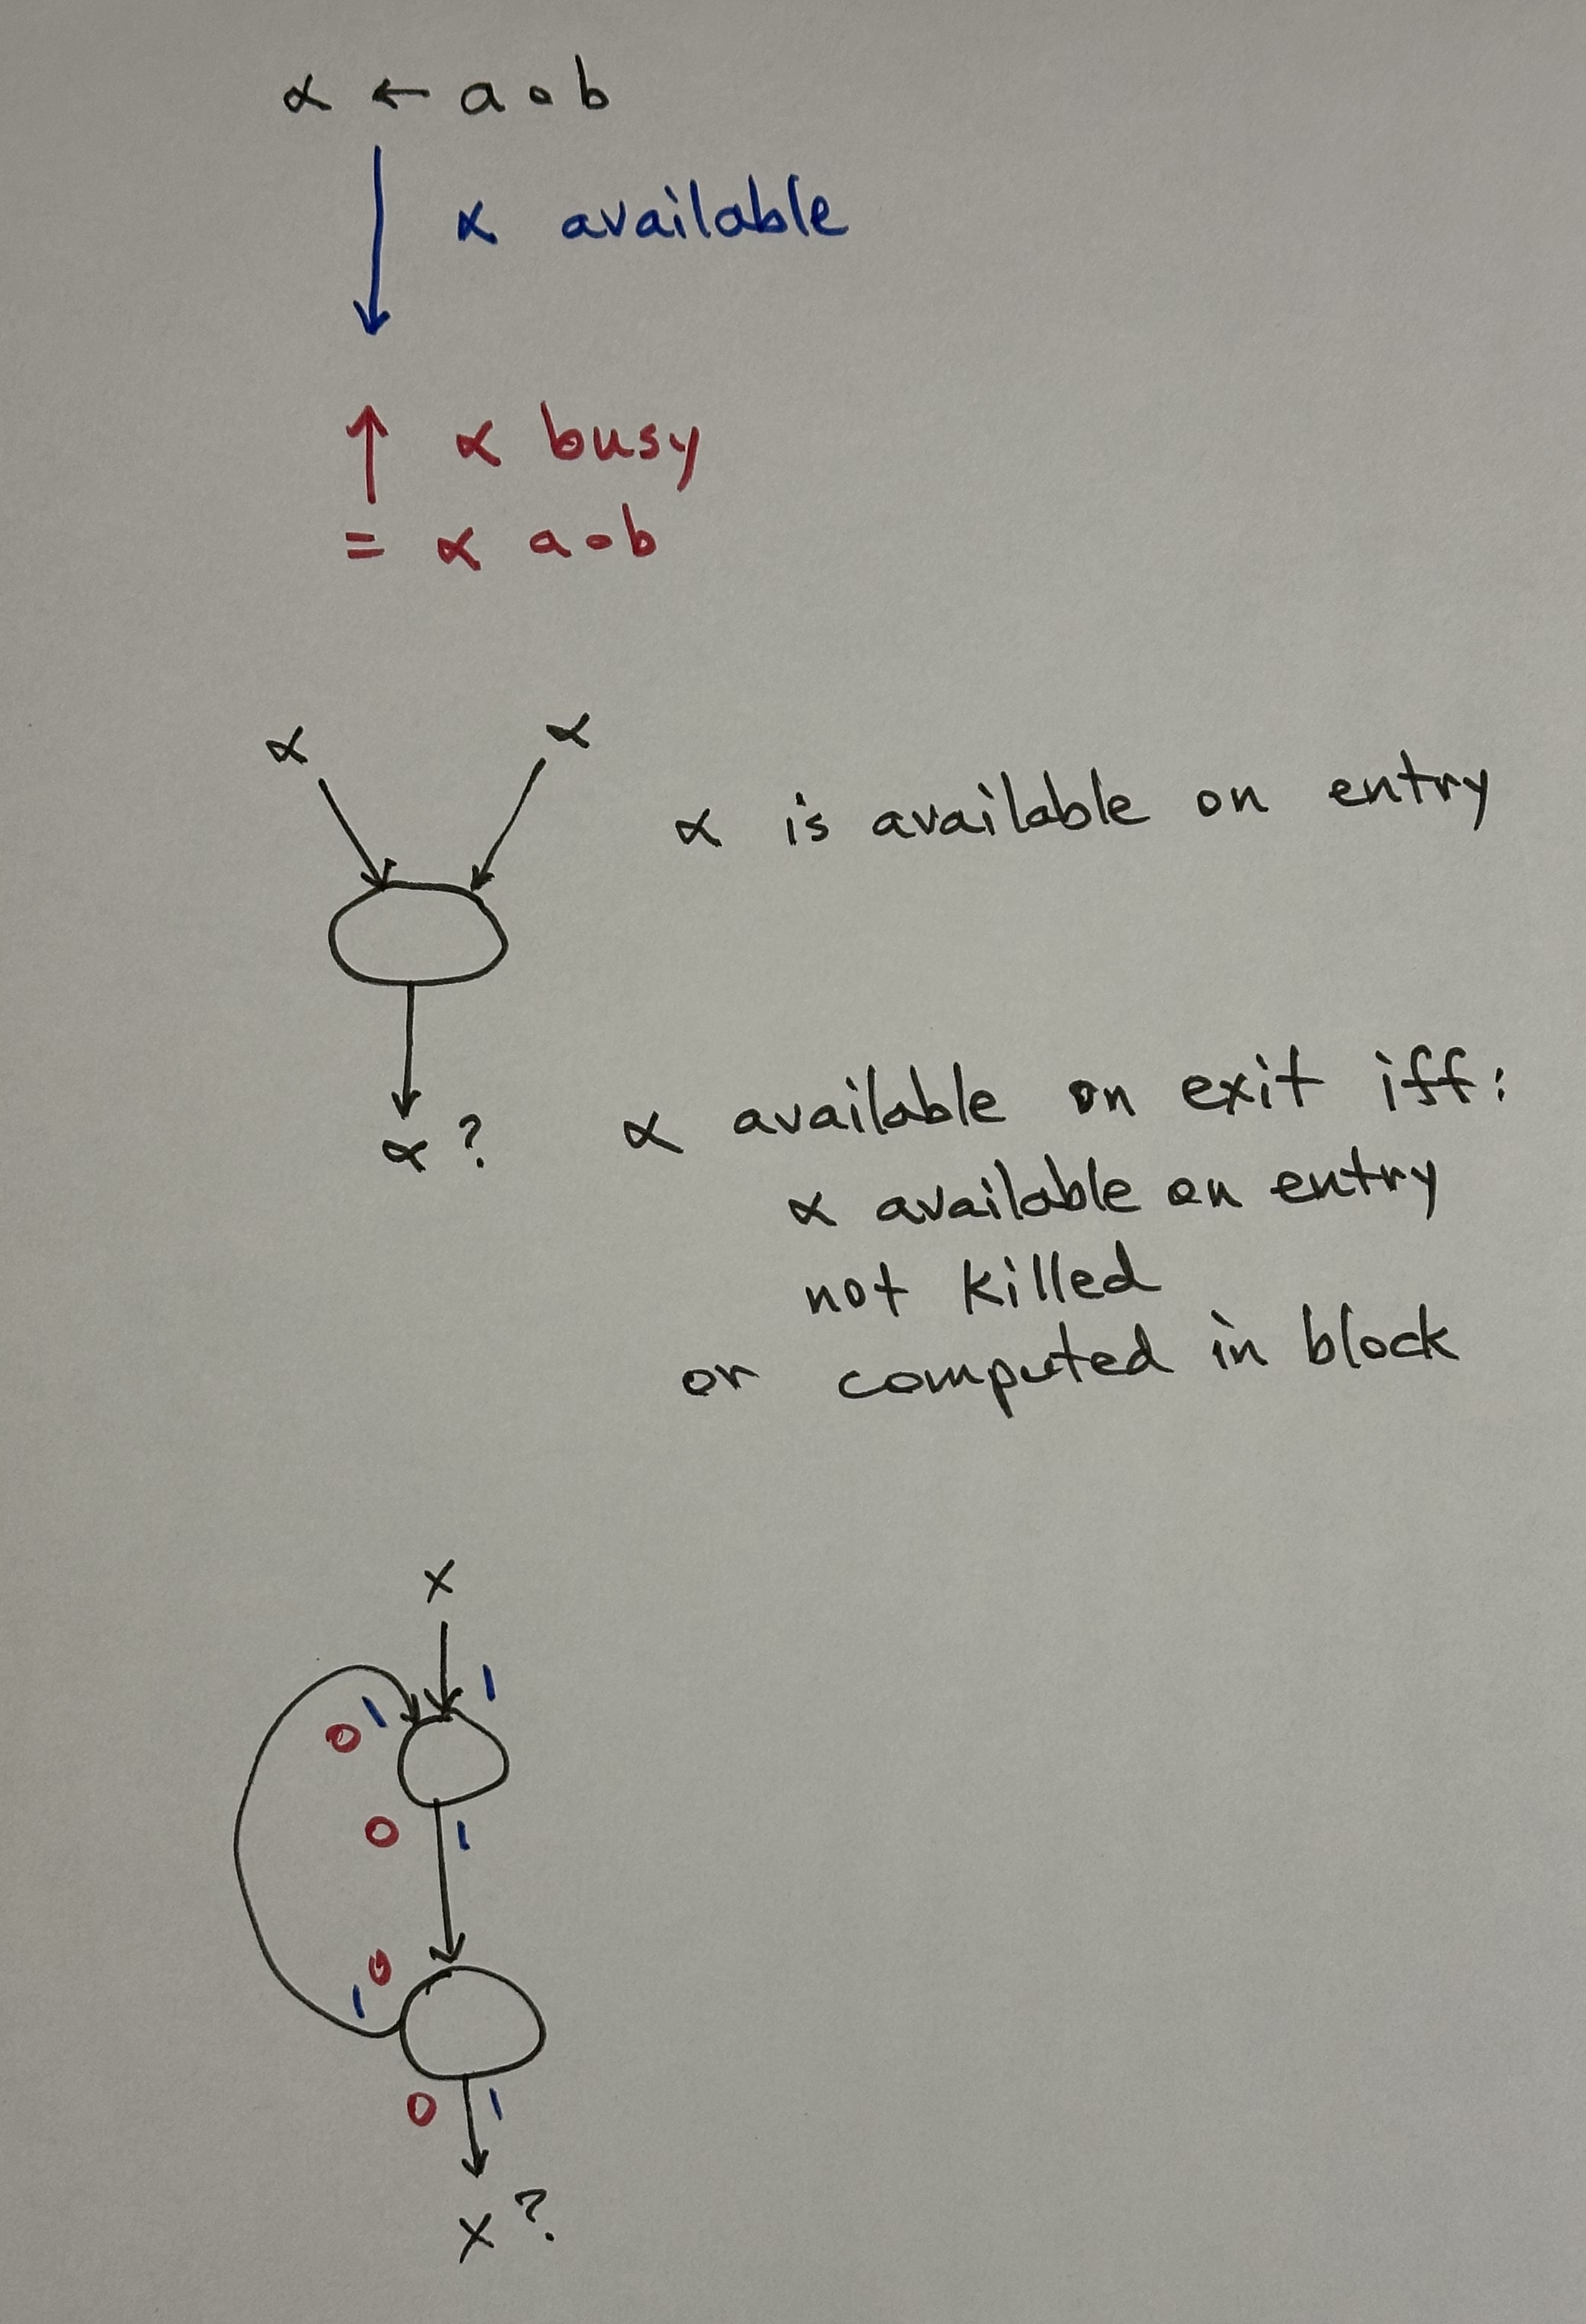 α ← a∘b
α available
α busy
= α a∘b
α α
α is available on entry
α ? α available on exit iff:
α available on entry
not killed
or computed in block
x
1
0 1
0 1
0
1
0 1
x ?